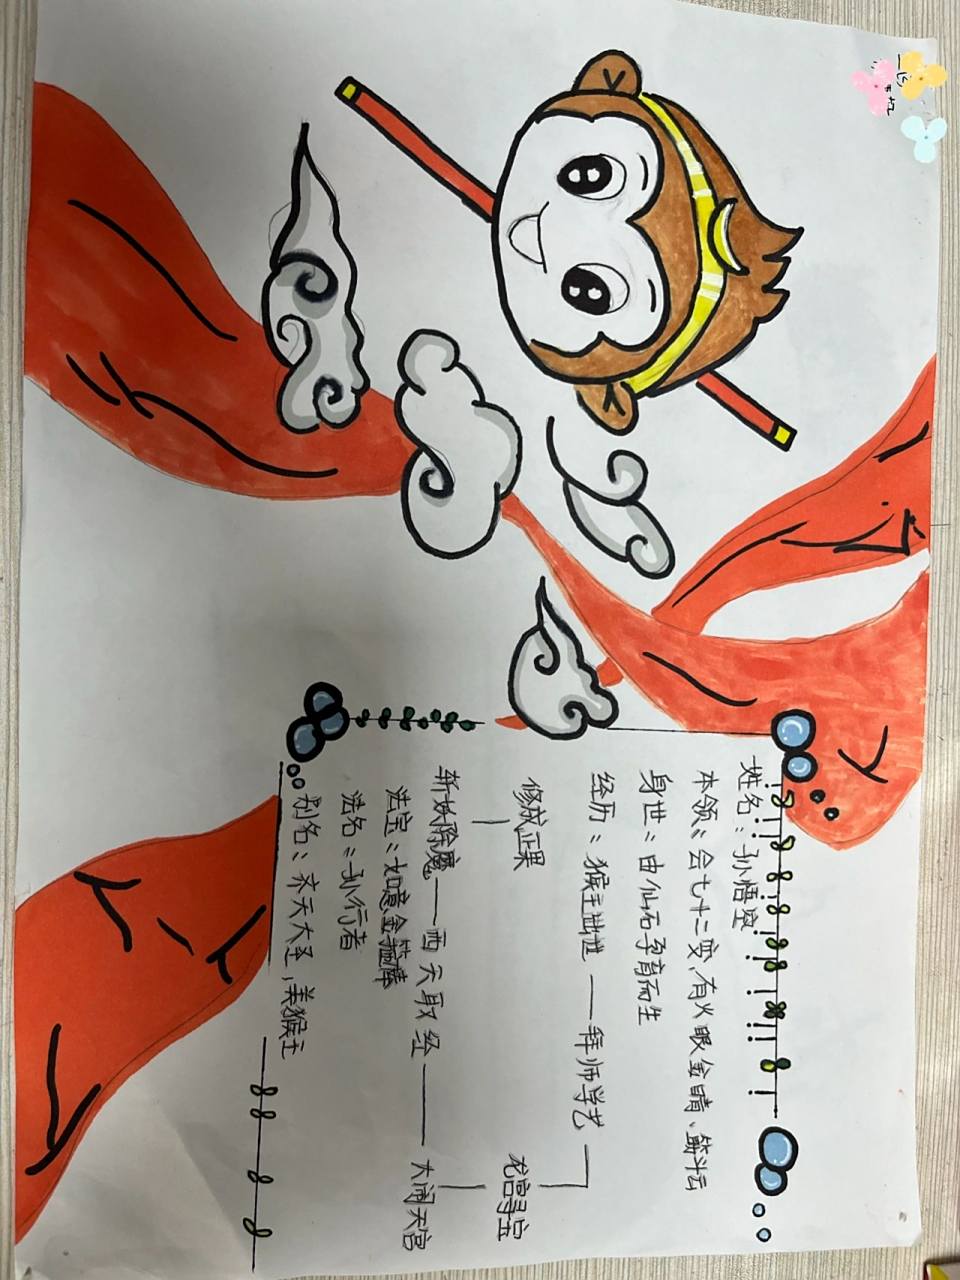 姓名：孙悟空
本领：会七十二变、有火眼金睛、筋斗云
身世：由仙石孕育而生
经历：猴王出世——拜师学艺
修成正果 龙宫寻宝
斩妖除魔——西天取经——大闹天宫
法宝：如意金箍棒
法名：孙行者
别名：齐天大圣，美猴王